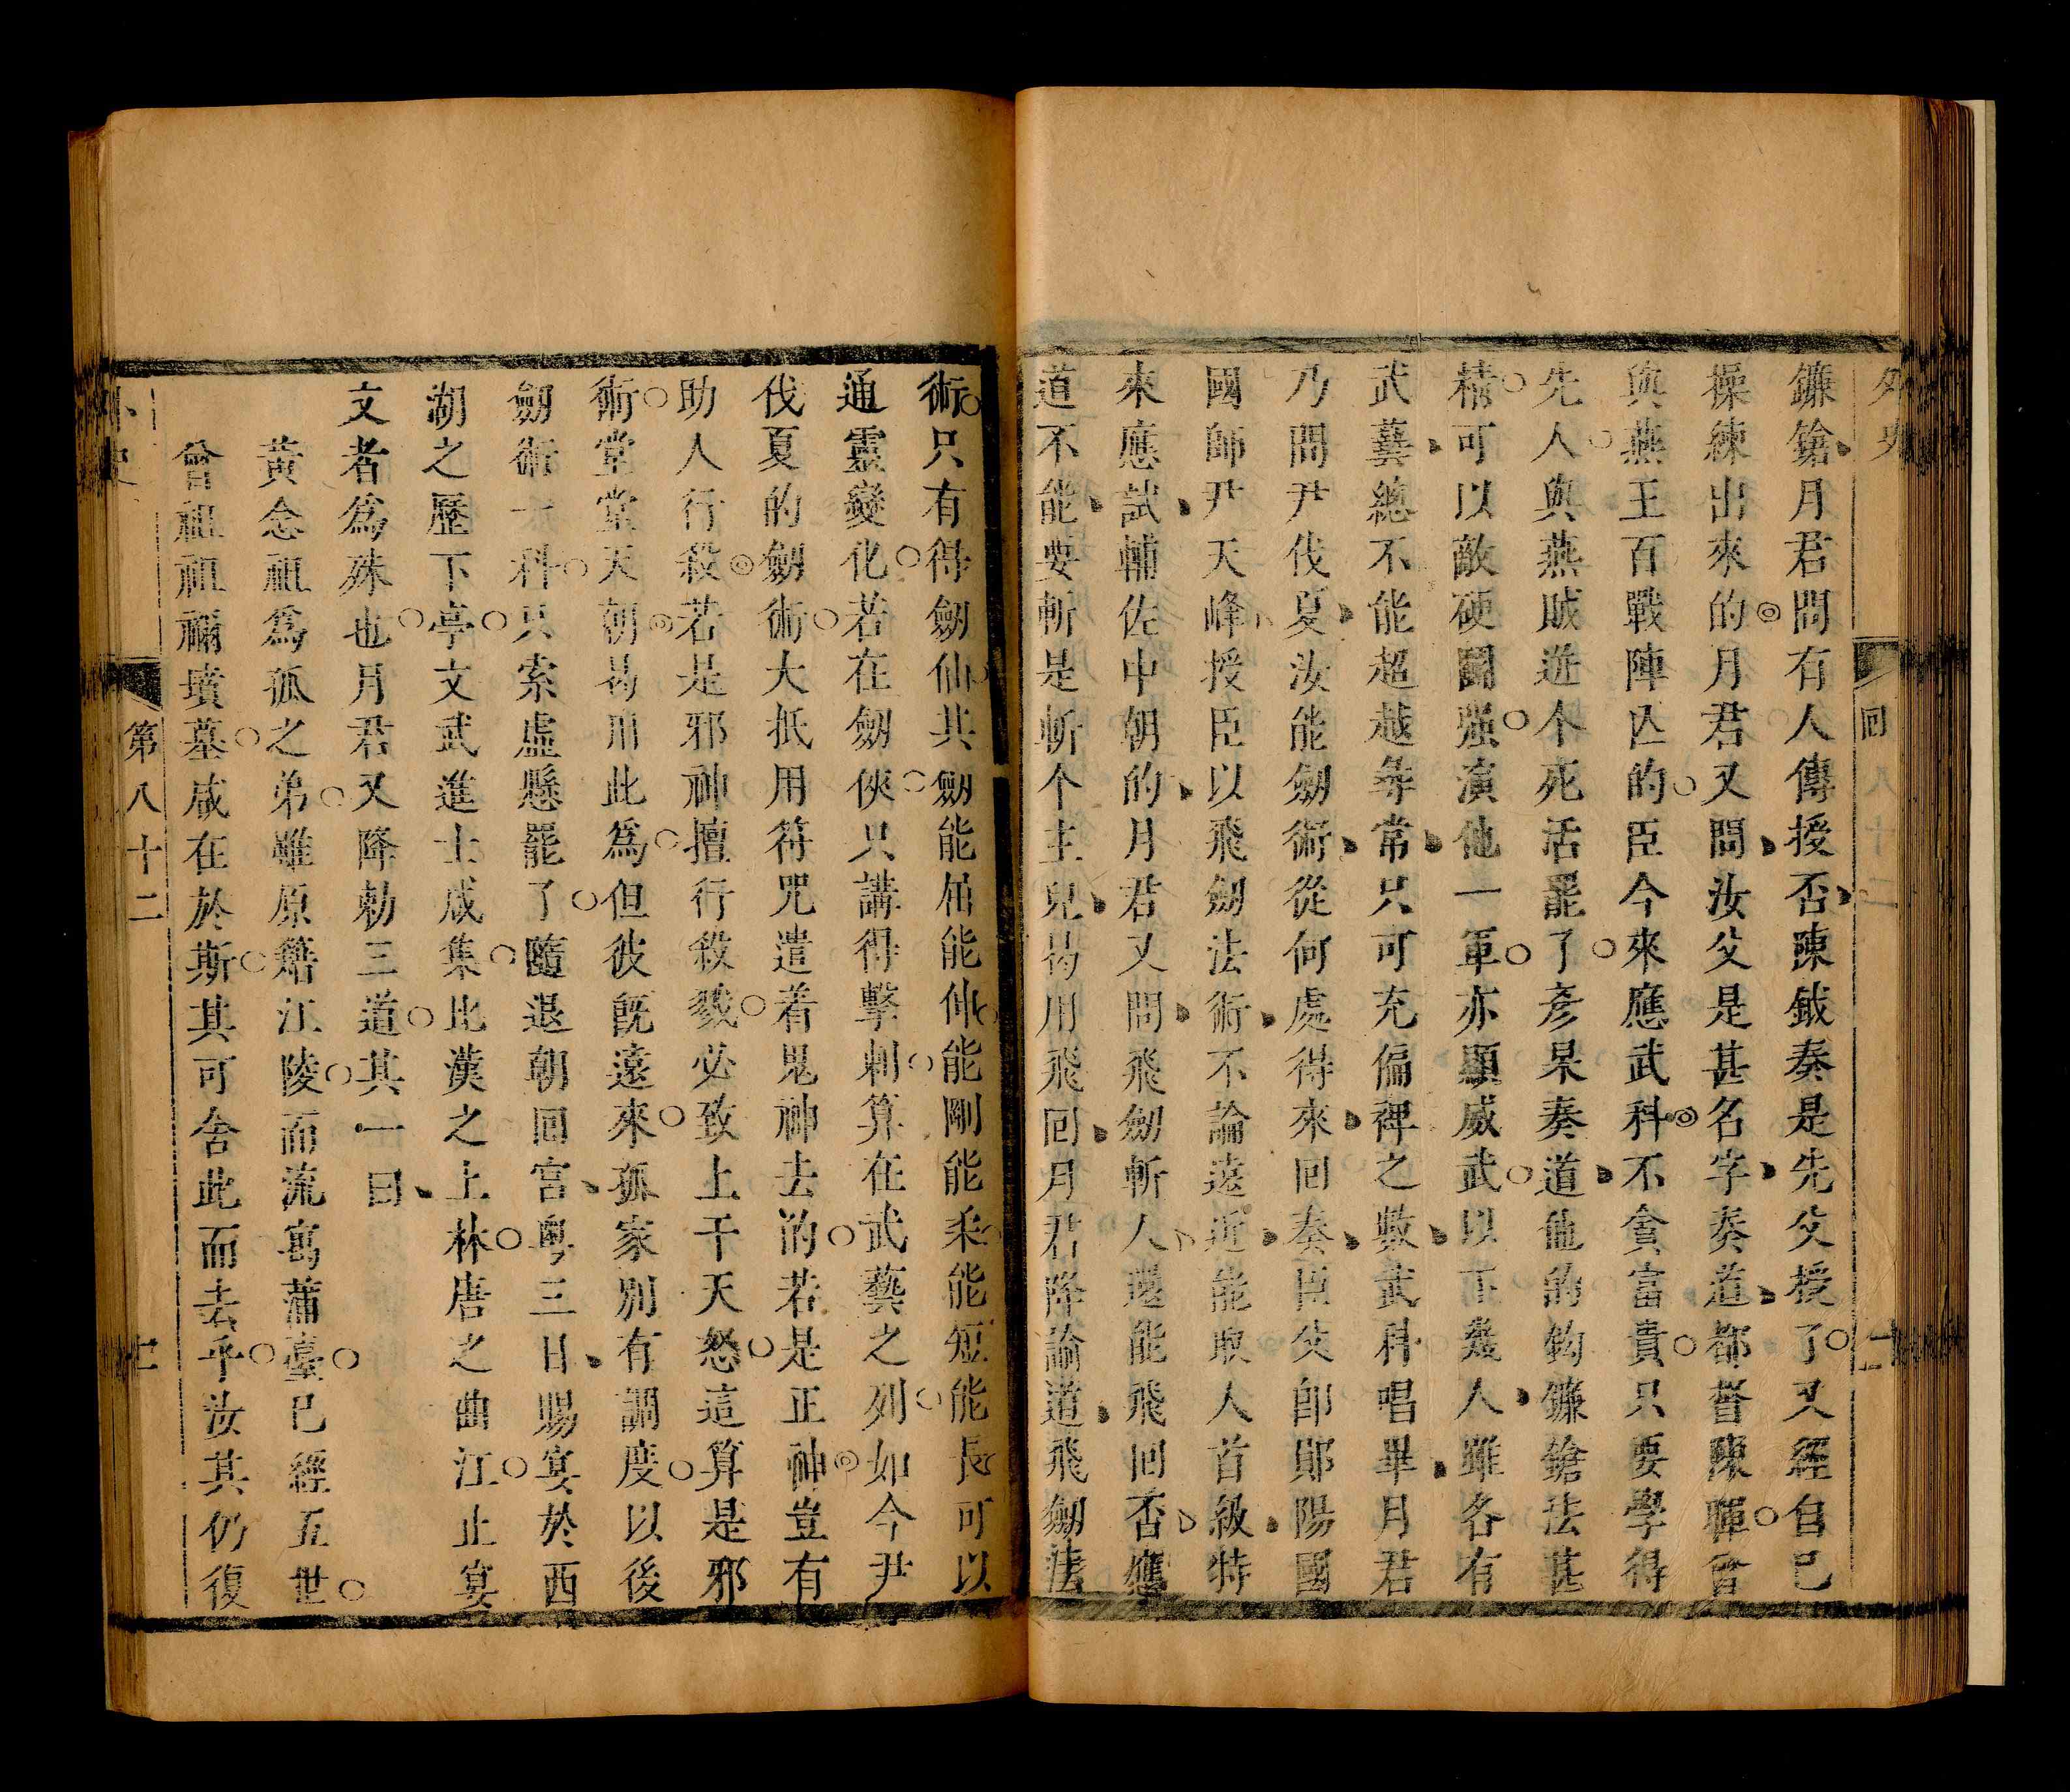 外史
回
鐮鎗月君問有人傳授否陳鉞奏是先父授了又經自己
操練出來的月君又問汝父是甚名字奏道都督陳暉曾
與燕王百戰陣亾的臣今來應武科不貪富貴只要學得
先人與燕賊迸个死活罷了彥杲奏道他的鈎鐮鎗法甚
精可以敵硬鬪强演他一軍亦顯威武以下幾人雖各有
武蓺總不能超越尋常只可充偏裨之數武科唱畢月君
乃問尹伐夏汝能劒術從何處得來回奏臣父卽鄖陽國
國師尹天峰授臣以飛劒法術不論遠近能取人首級特
來應試輔佐中朝的月君又問飛劒斬人還能飛回否應
道不能要斬是斬个主兒曷用飛回月君降諭道飛劒法
術只有得劒仙其劒能屈能伸能剛能柔能短能長可以
通靈變化若在劒俠只講得擊刺算在武藝之列如今尹
伐夏的劒術大抵用符咒遣着鬼神去的若是正神豈有
助人行殺若是邪神擅行殺戮必致上干天怒這算是邪
術堂堂天朝曷用此爲但彼旣遠來孤家別有調度以後
劒術一科只索虛懸罷了隨退朝回宮粤三日賜宴於西
湖之歷下亭文武進士咸集比漢之上林唐之曲江止宴
文者爲殊也月君又降勅三道其一曰
黃念祖爲孤之弟雖原籍江陵而流寓蒲臺已經五世
曾祖祖禰墳墓咸在於斯其可舍此而去乎汝其仍復
外史
第八十二